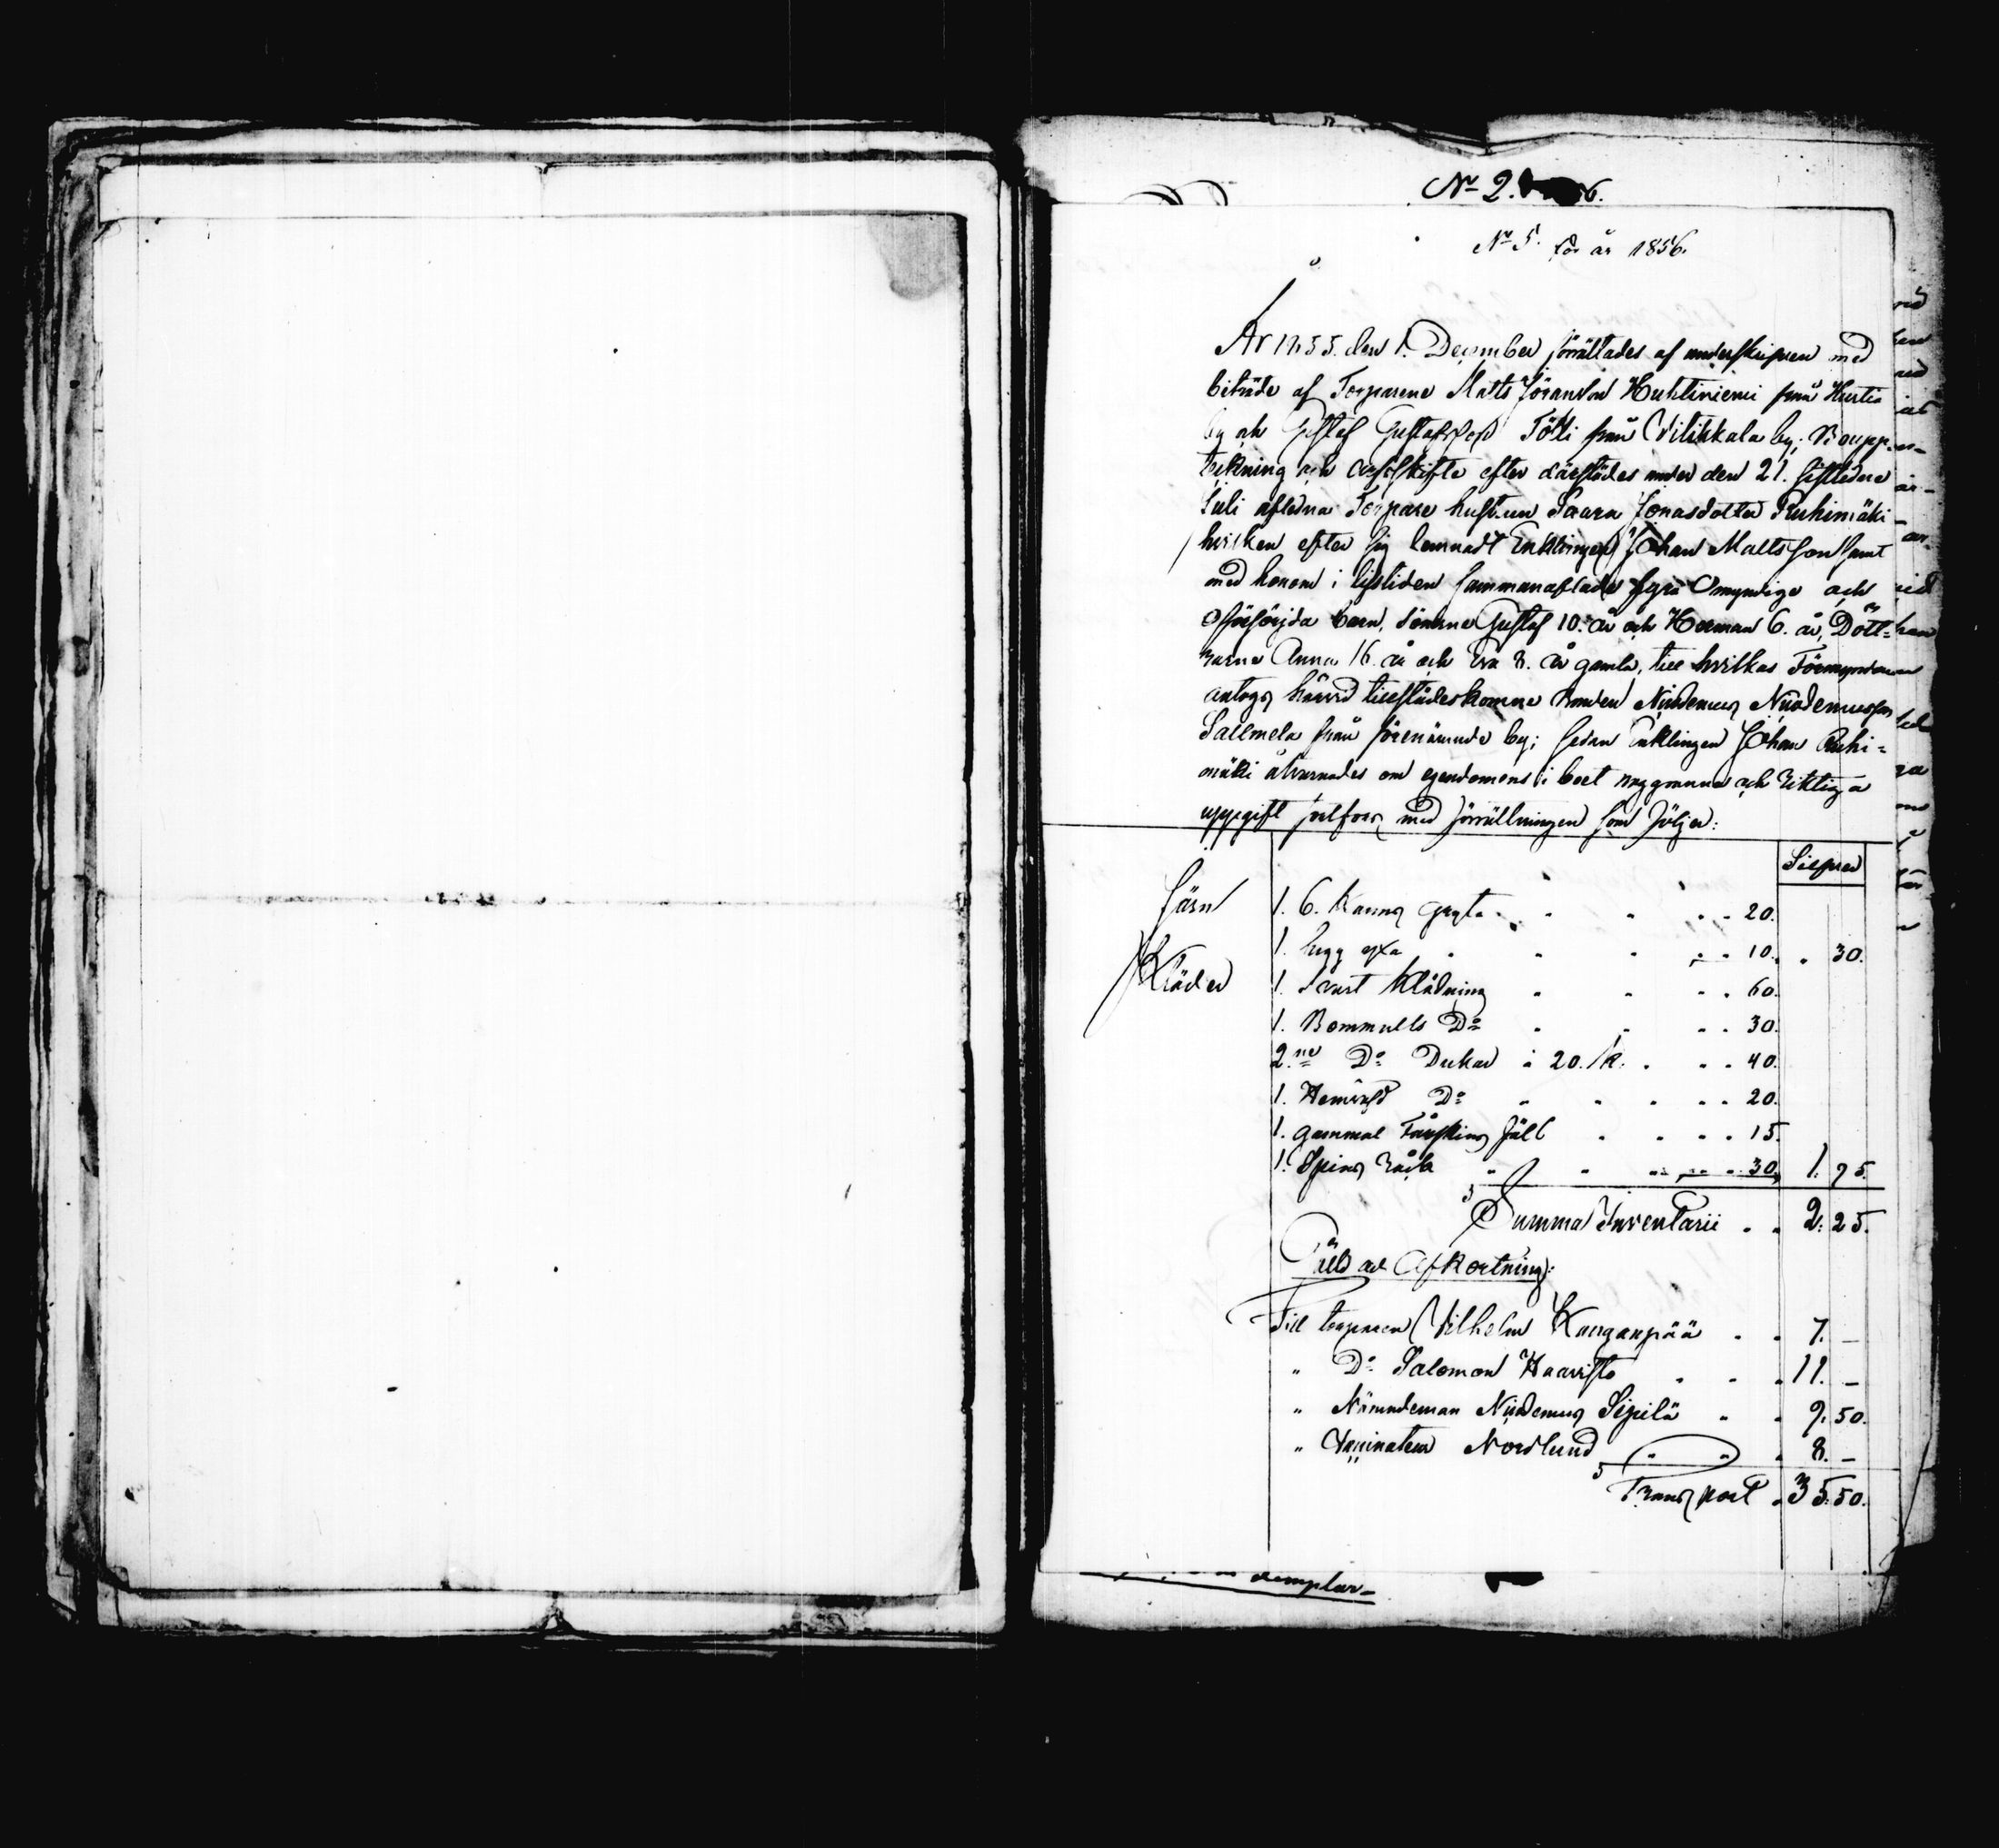 No 2. 6.
No 5. för år 1856.
År 1855. den 1. December förrättades af undersk­rifven med
biträde af Torparene Matts Jöransson Huhtiniemi från Hurtis
by och Gustaf Gustafsson Tölli från Vilikkala by; Bouppen-
tekning och arfskifte efter därstädes under den 21. sistledne
Juli afledna Torpare hustrun Saara Jonasdotter Ruhimäki
hvilken efter sig lemnadt Enklingen Johan Mattsson samt
med honom i lifstiden sammanaflade fyra omyndige och
oförsörjda barn, sönerne Gustaf 10. år och Herman 6. år, Dött-
rarne Anna 16. år och Eva 8. år gamla, till hvilkas Förmyndare
antogs härvid tillstädeskomne Bonden Nicodemus Nicodemusson
Sallmela från förenämnde by; sedan Enklingen Johan Ruhi-
mäki åtvarnades om egendomens i boet noggranna och riktiga
uppgift med förrättningen som följer:
Silfver
Järn 1. 6. kanns gryta 20.
1. hugg yxa 10. 30.
Kläder 1. svart klädning 60.
1. Bommulls Do 30.
2ne Do Dukar à 20. k. 40.
1. Hemväfd Do 20.
1. gammal Fårskins fäll 15.
1. Spinn råck 30. 1. 95.
Summa Inventarii 2. 25.
Gäld och Afkortning:
Till torparen Vilhelm Kanganpää 7. –
" Do Salomon Haavisto 11. –
" Nämndeman Nicodemus Sipilä 9. 50.
" Nordlund 8. –
Transport 35. 50.
exemplar